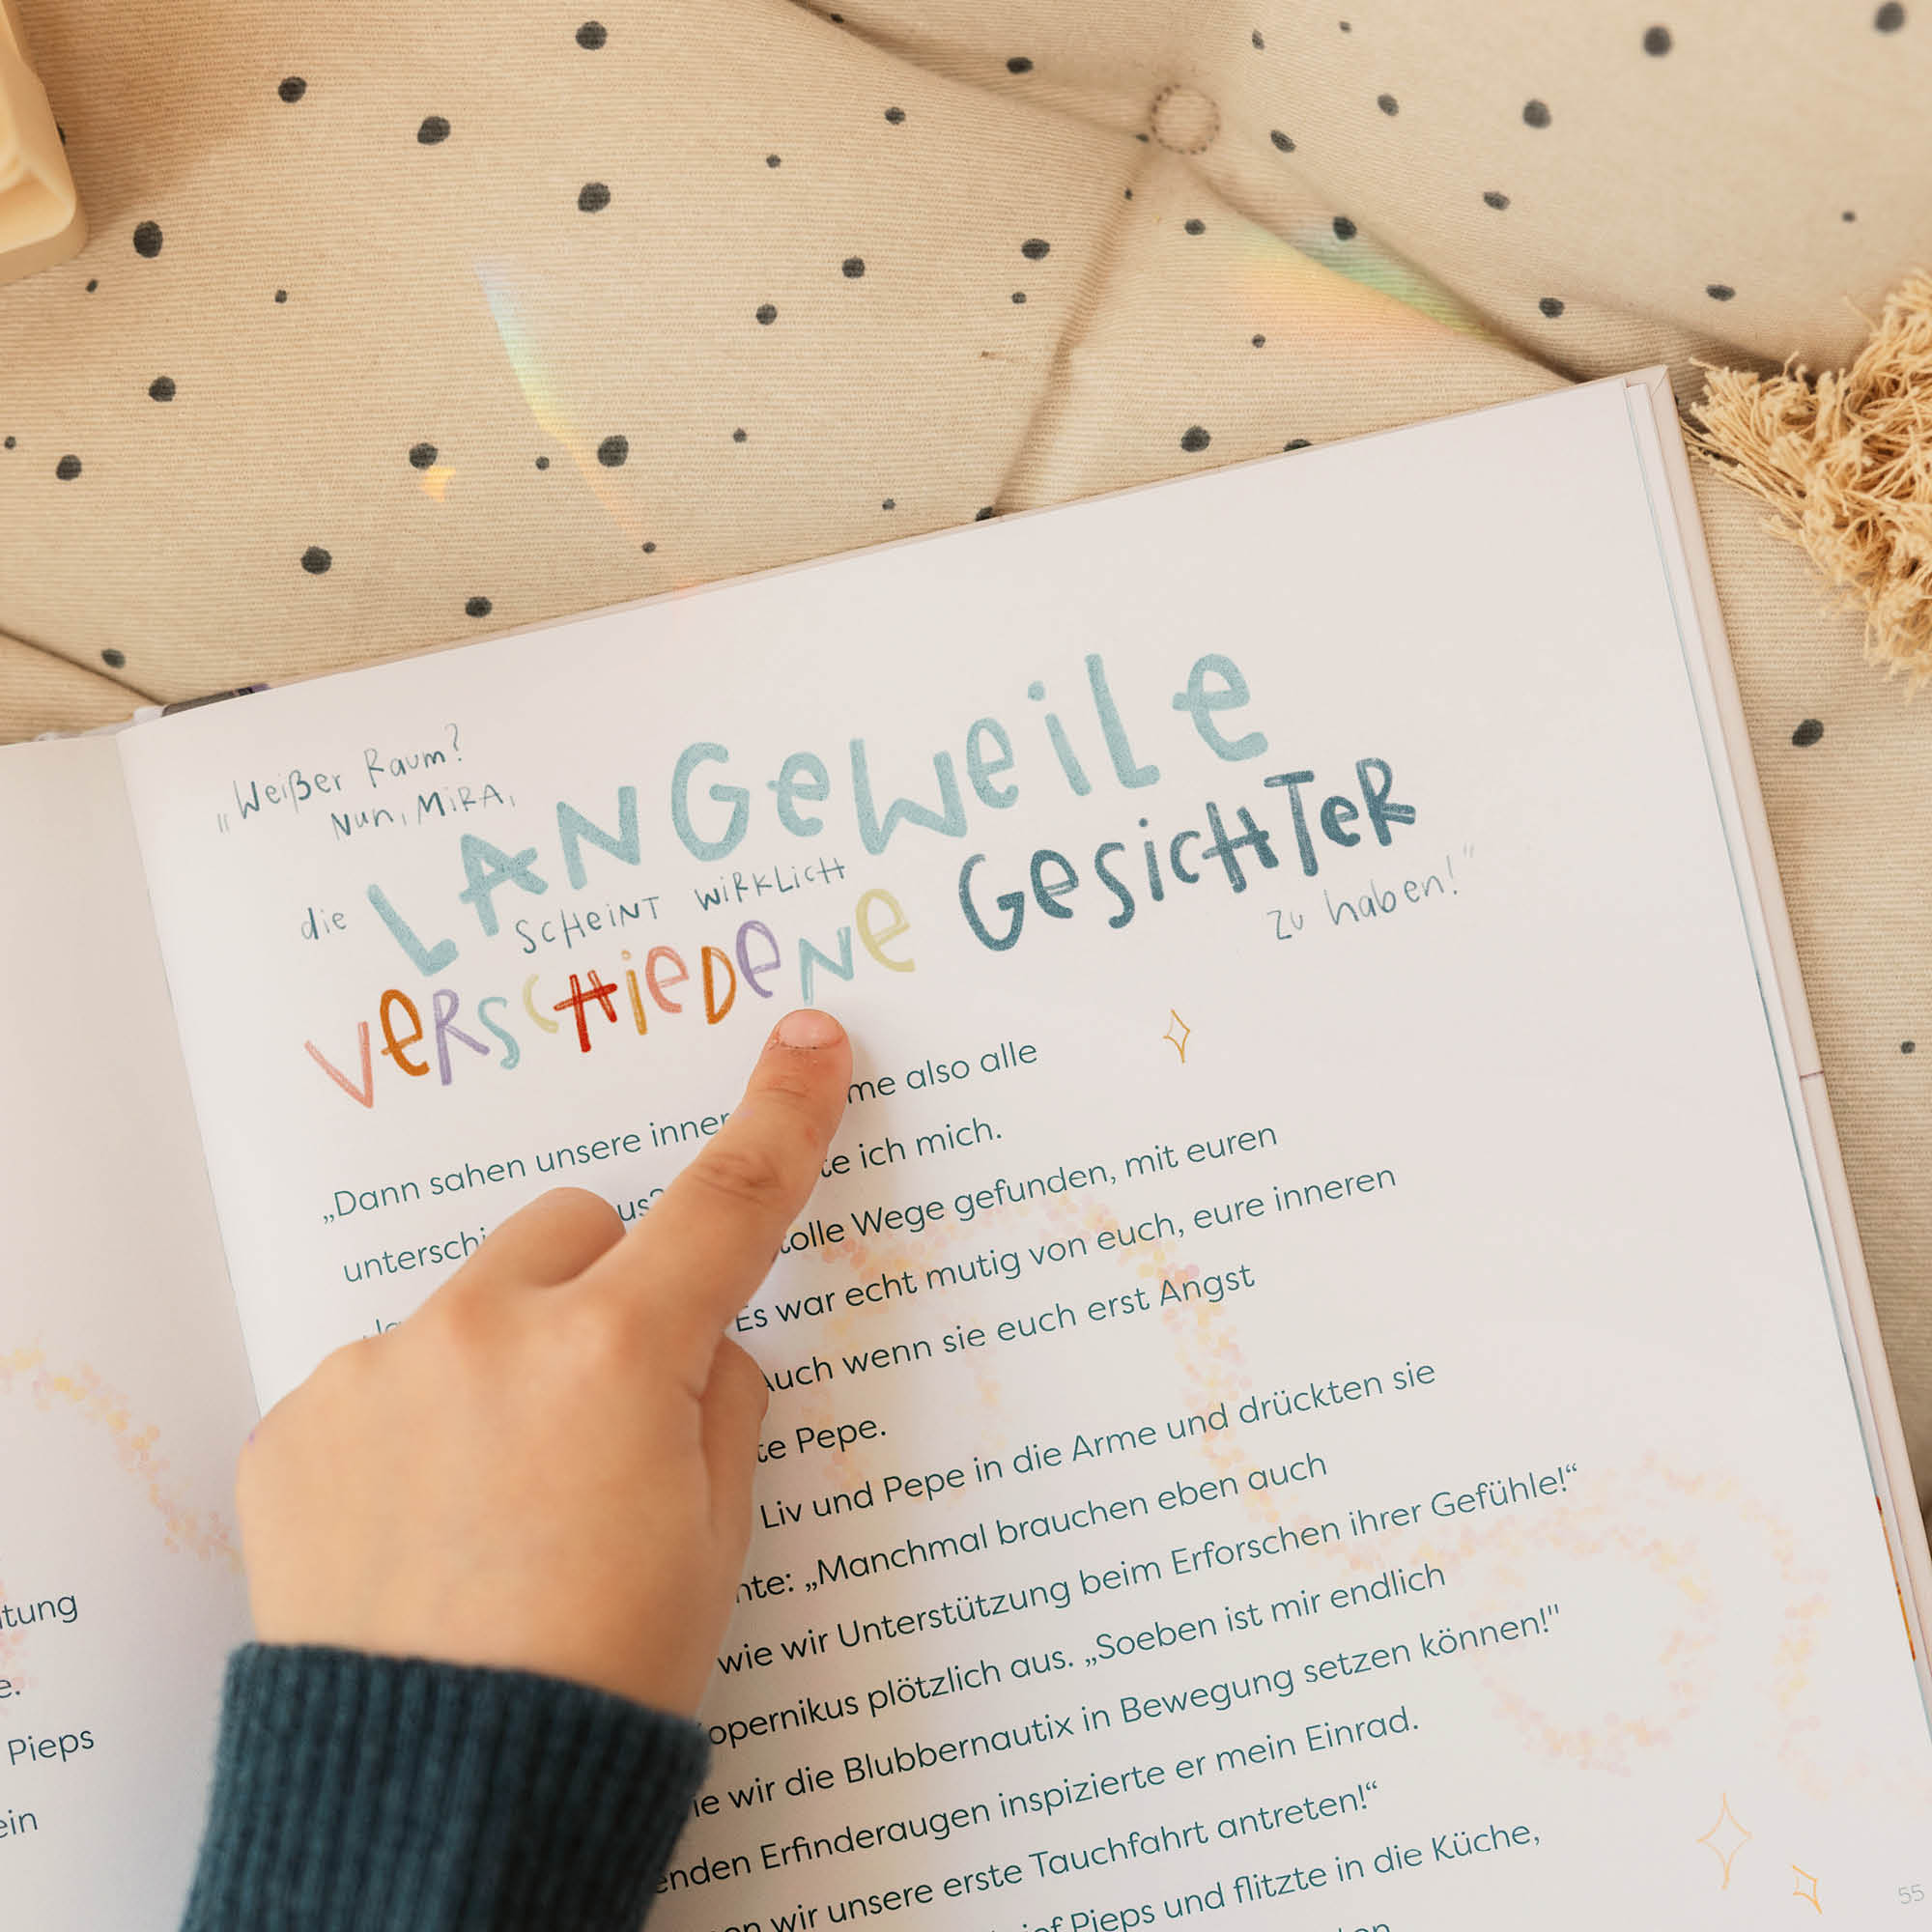 tung
e.
Pieps
ein
„Weißer Raum?
Nun, MiRA,
die LANGeWeiLe
SCHeiNT WiRKLiCH
VeRSCHieDeNe GeSiCHTeR
zu haben!"
„Dann sahen unsere inner me also alle
unterschi us? te ich mich.
tolle Wege gefunden, mit euren
Es war echt mutig von euch, eure inneren
Auch wenn sie euch erst Angst
te Pepe.
Liv und Pepe in die Arme und drückten sie
nte: „Manchmal brauchen eben auch
wie wir Unterstützung beim Erforschen ihrer Gefühle!“
opernikus plötzlich aus. „Soeben ist mir endlich
ie wir die Blubbernautix in Bewegung setzen können!"
enden Erfinderaugen inspizierte er mein Einrad.
en wir unsere erste Tauchfahrt antreten!“
ief Pieps und flitzte in die Küche,
55